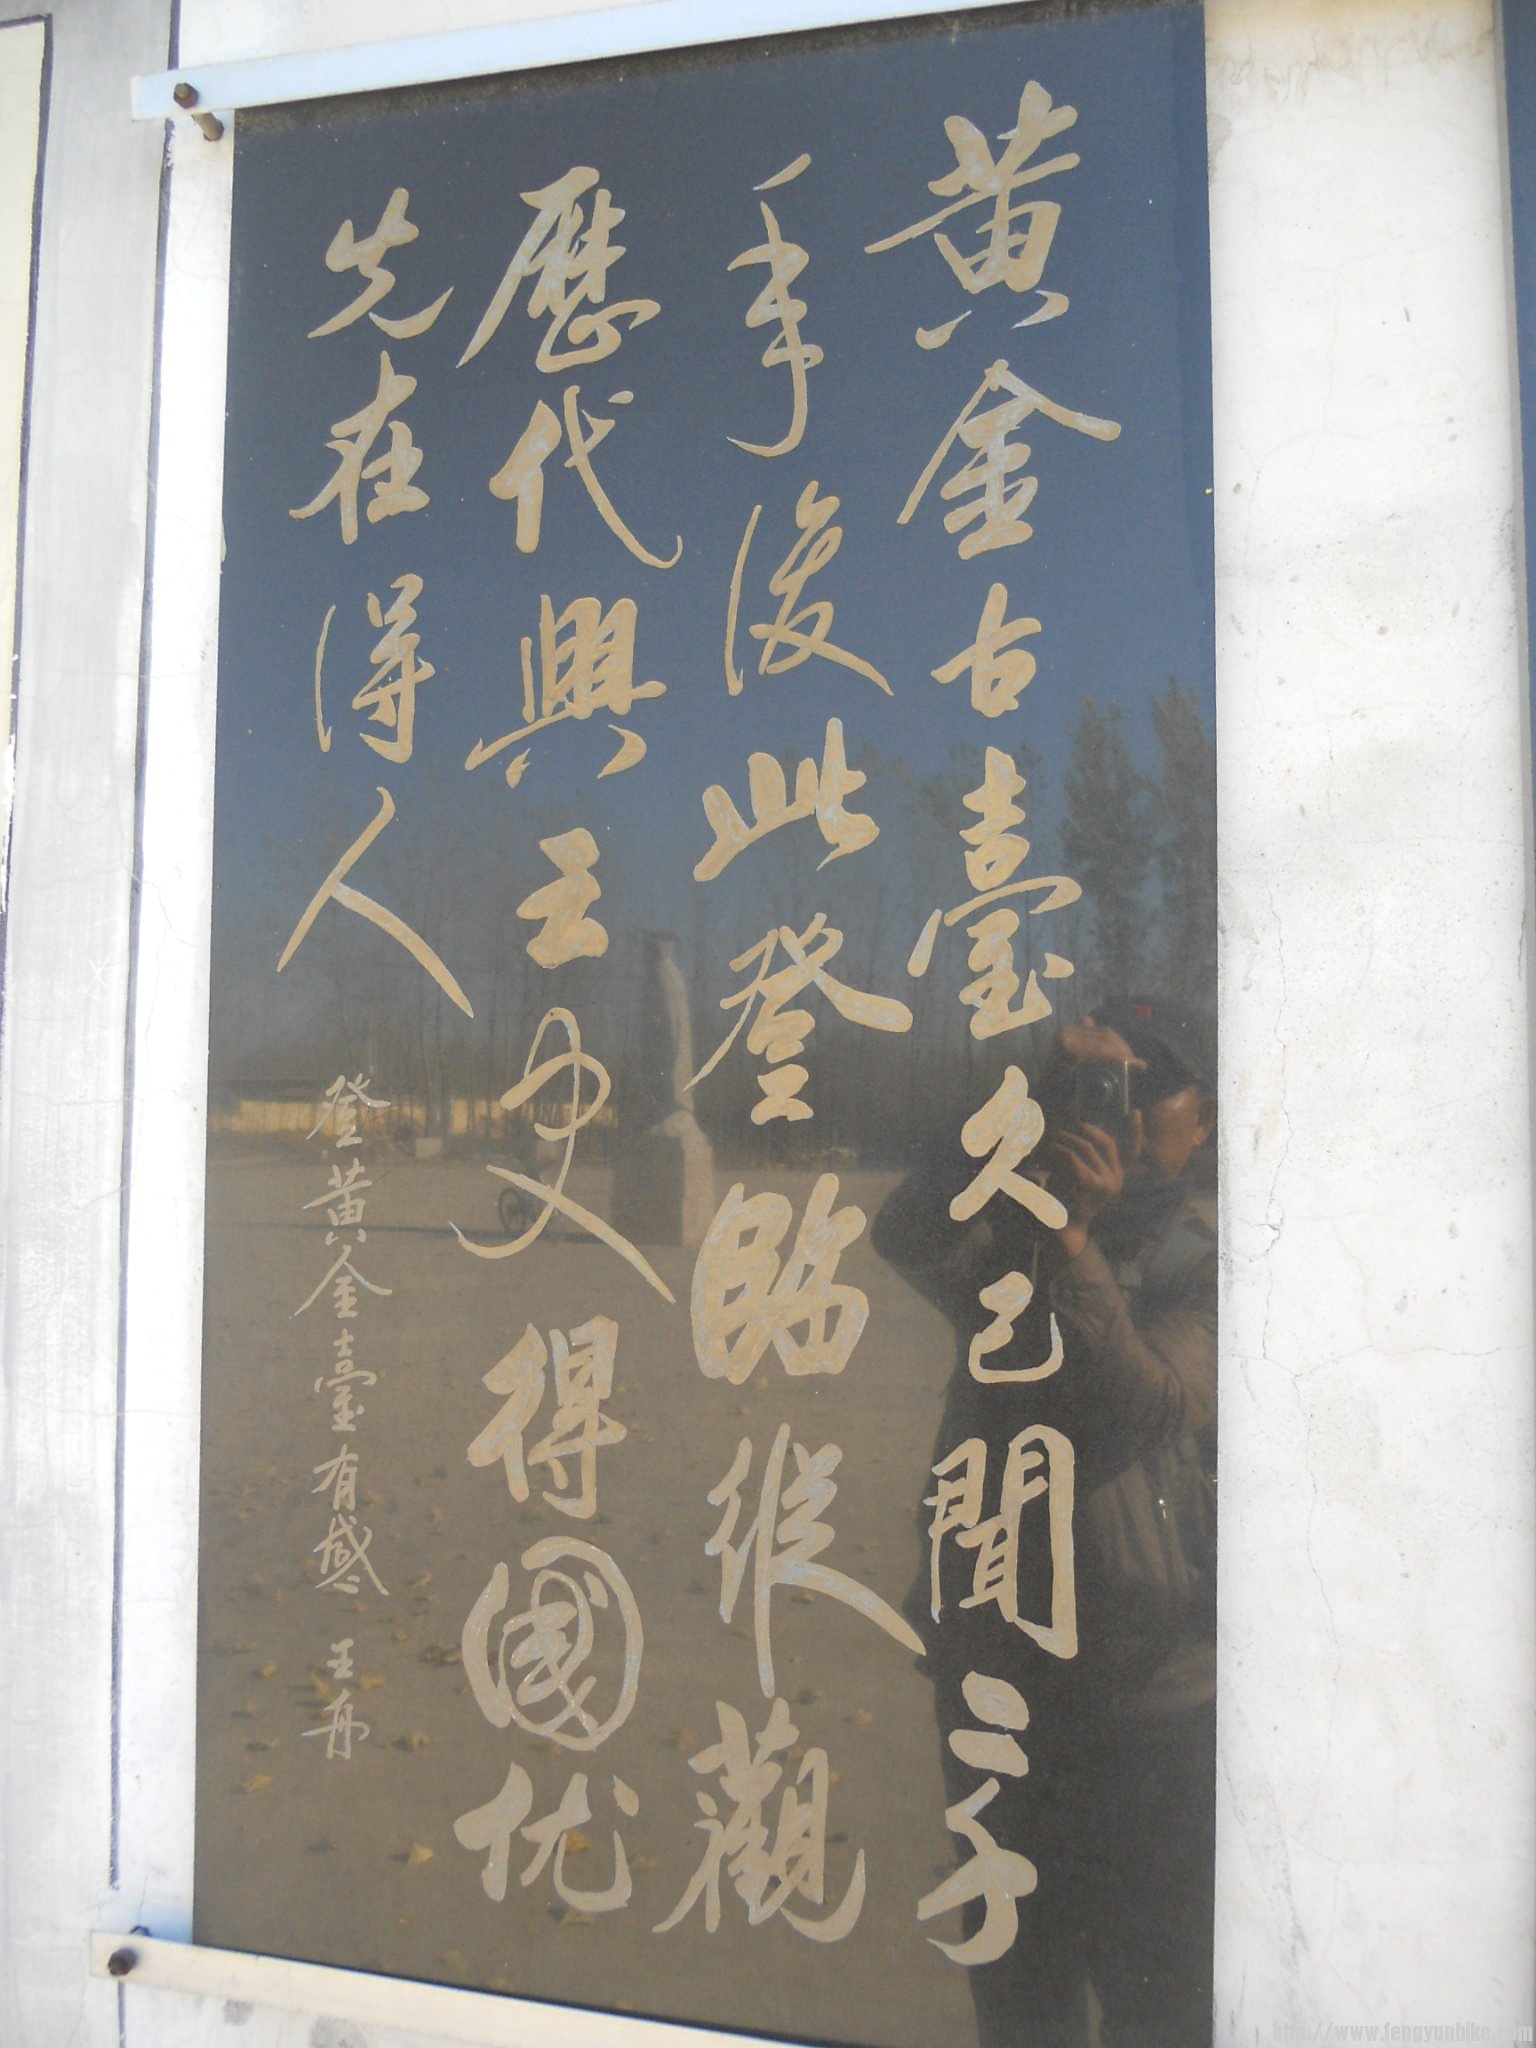 黄金古臺久已聞二千
年後此登臨縱觀
歷代興亡史得國优
先在得人
登黄金臺有感 王舟
http://www.fengyunbike.com